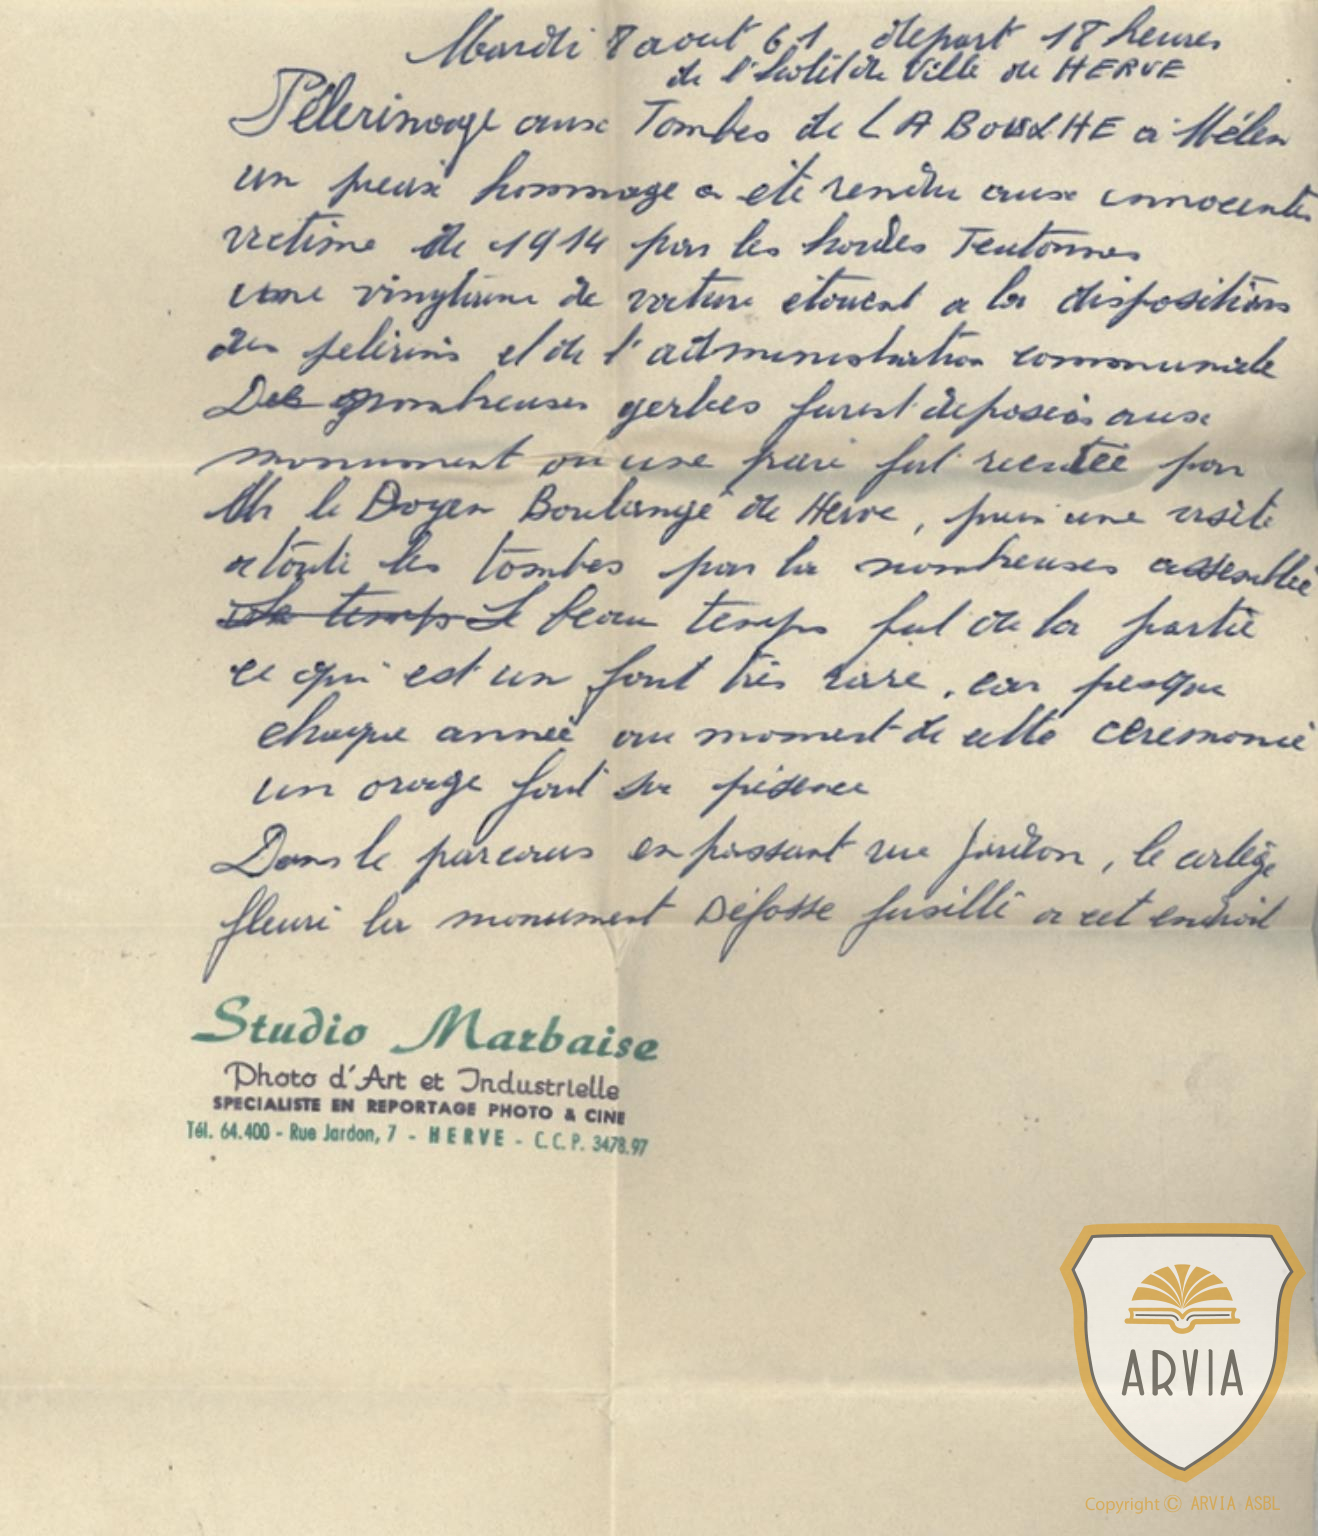 Mardi 8 aout 61 depart 18 heures
de l'hotel de Ville de HERVE
Pélerinage aux Tombes de LABOUXHE a Mélen
un pieux hommage a eté rendu aux innocentes
victime de 1914 par les hordes Teutonnes
une vingtaine de voiture etaient a la disposition
des pelerins et de l'administration communale
De nombreuses gerbes furent deposeés aux
monument ou une priere fut recitée par
Mr le Doyen Boulangé de Herve, puis une visite
a toute les tombes par la nombreuses assemblée
Le temps Le beau temps fut de la partie
ce qui est un fait très rare, car presque
chaque année au moment de cette ceremonie
un orage fait sa présence
Dans le parcours en passant rue Jardon, le cortège
fleuri le monument Défosse fusillé a cet endroit
Studio Marbaise
Photo d'Art et Industrielle
SPECIALISTE EN REPORTAGE PHOTO & CINE
Tél. 64.400 - Rue Jardon, 7 - HERVE - C.C.P. 3478.97
ARVIA
Copyright © ARVIA ASBL